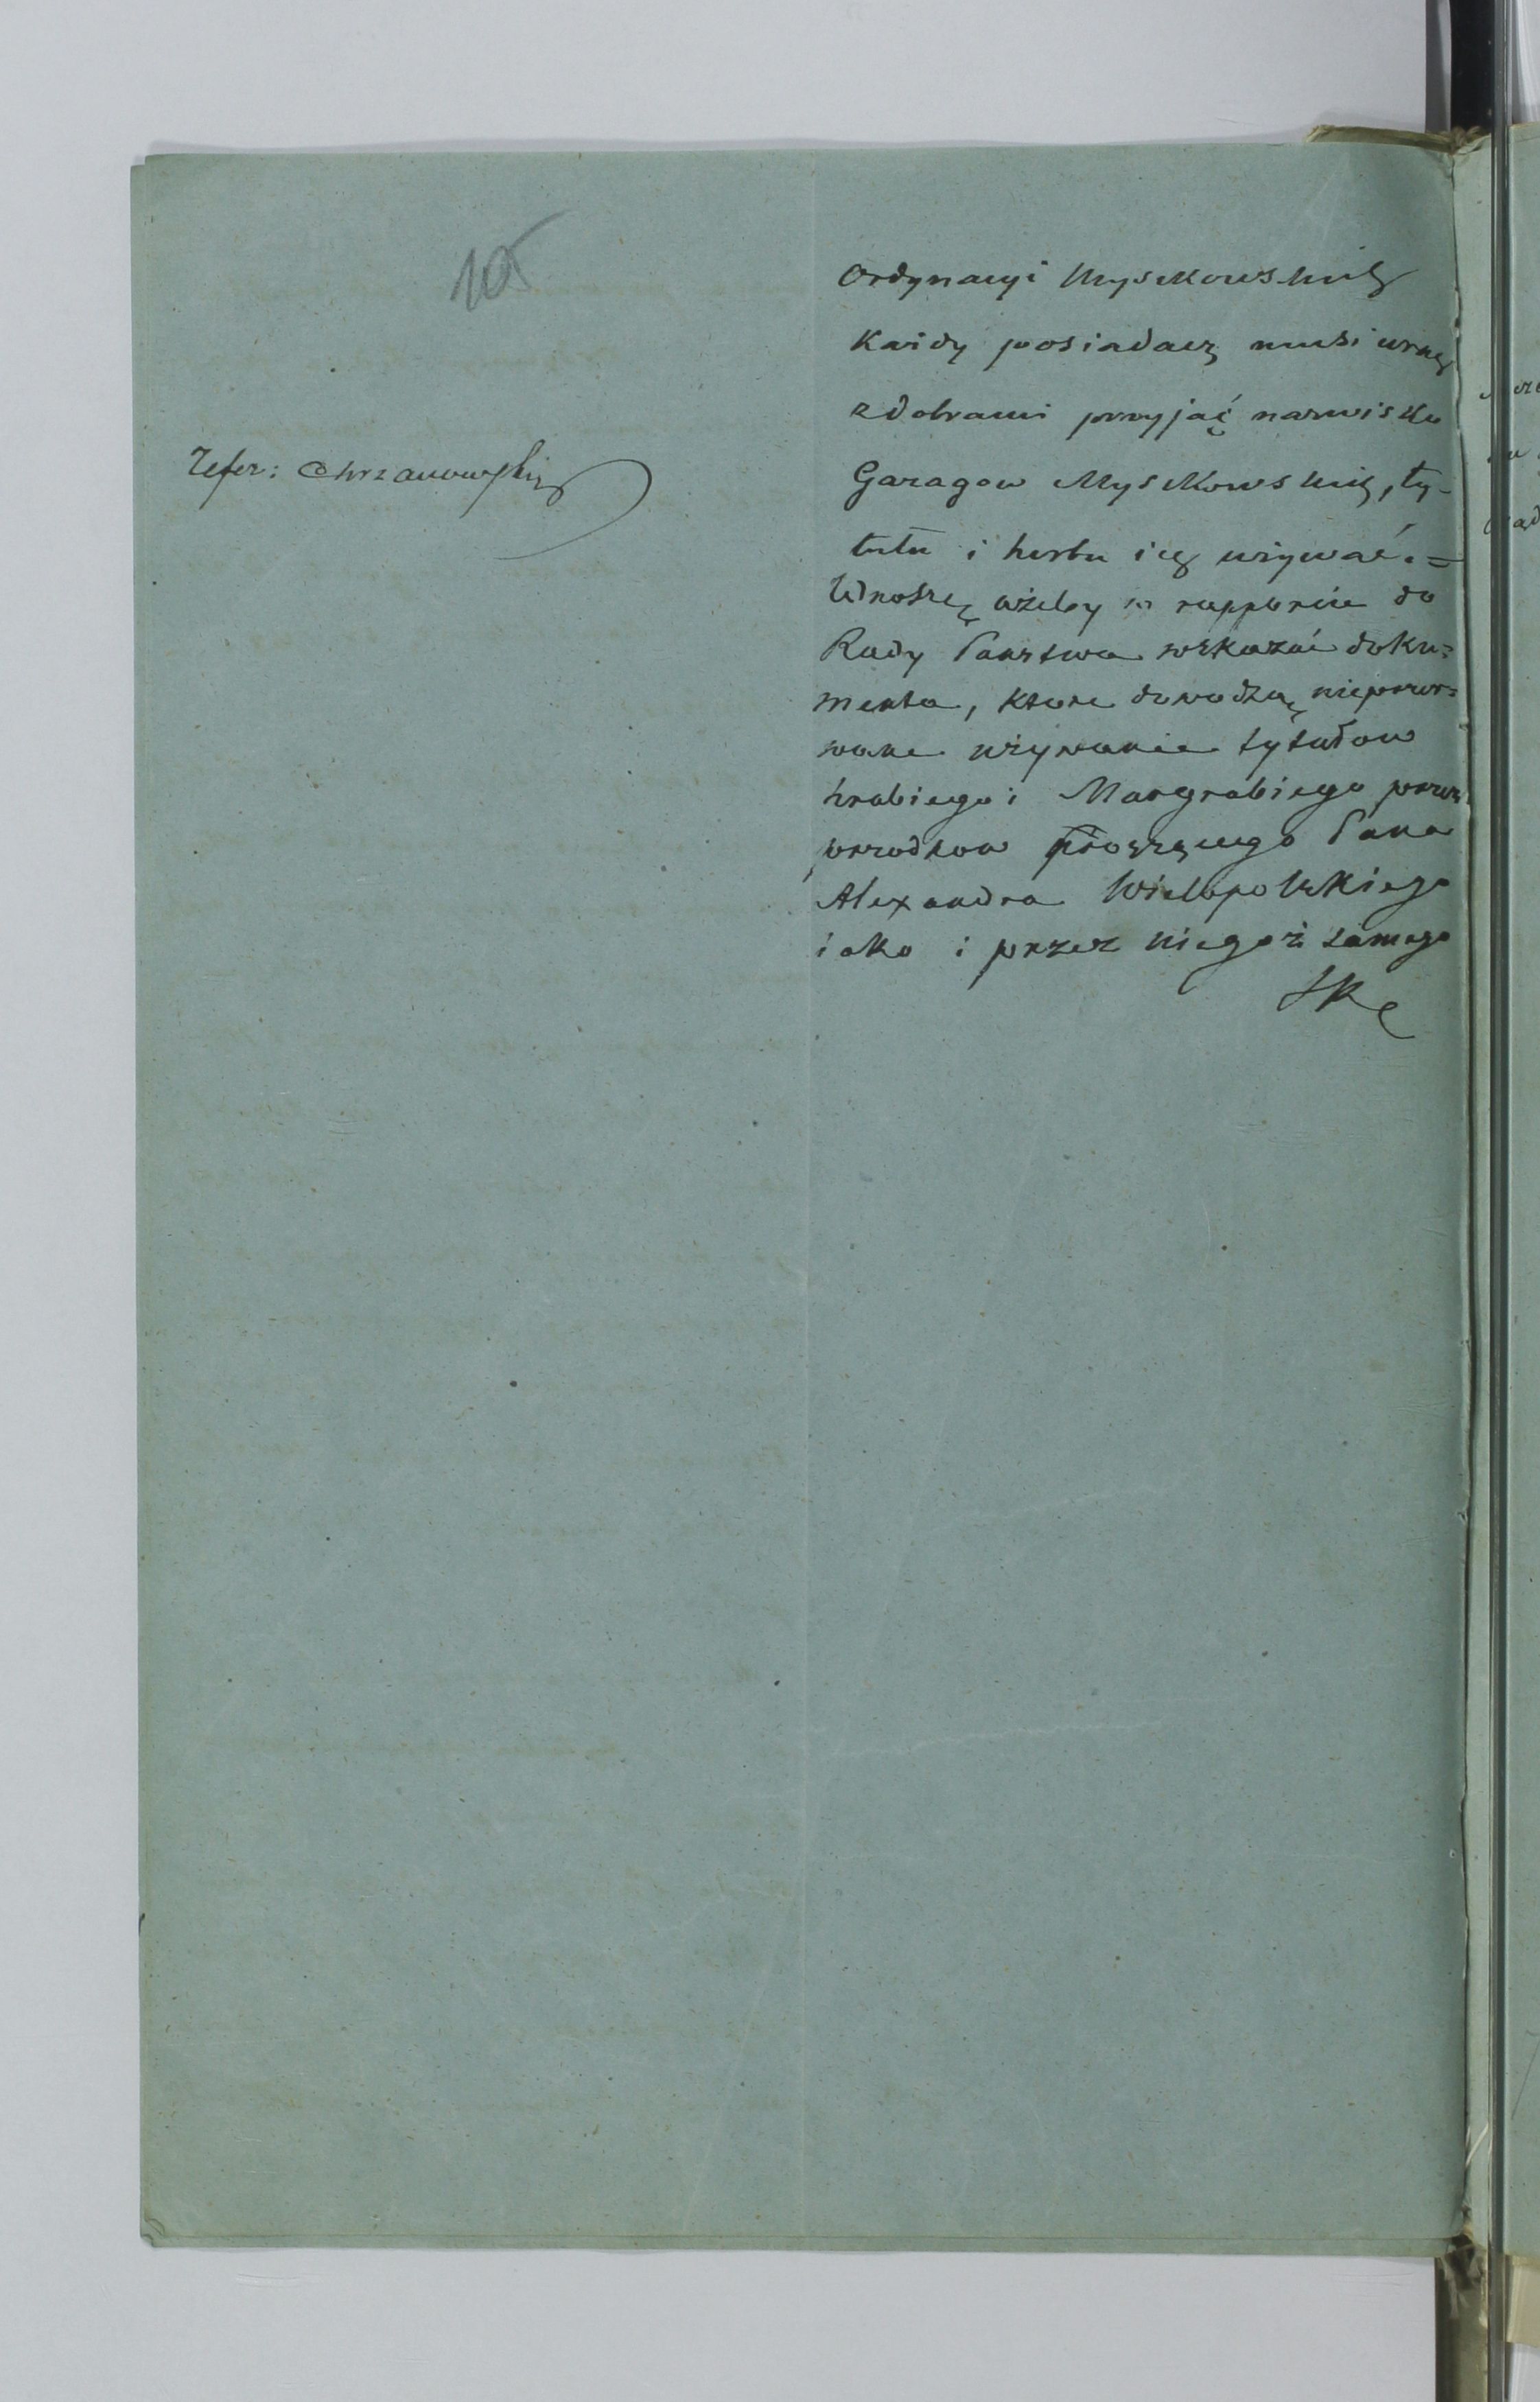 105
Refer: Chrzanowski
Ordynacyi Myszkowskiej
Każdy posiadacz musi wraz
z dobrami przyjąć nazwisko
Gazagow Myszkowskich, ty-
tułu i herbu ich używać. =
Wnoszę ażeby w rapporcie do
Rady Państwa wskazać doku=
menta, które dowodzą nieprzer=
wane używanie tytułów
hrabiego i Margrabiego przez
przodków proszącego Pana
Alexandra Wielopolskiego
iako i przez niegoż samego